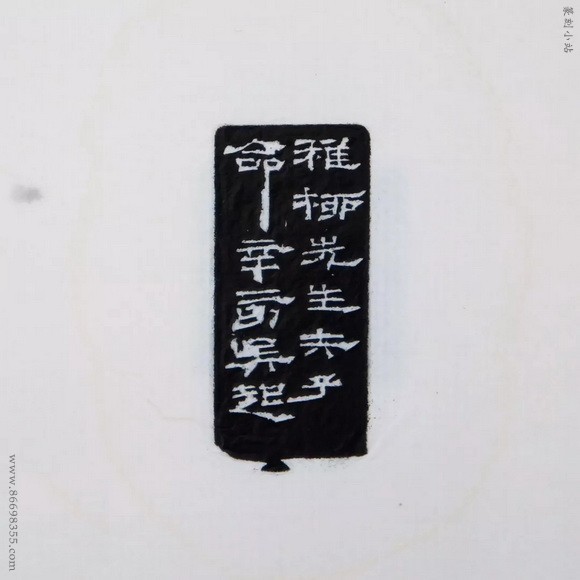 稚柳先生
命辛酉吴起
篆刻小站
www.86698355.com